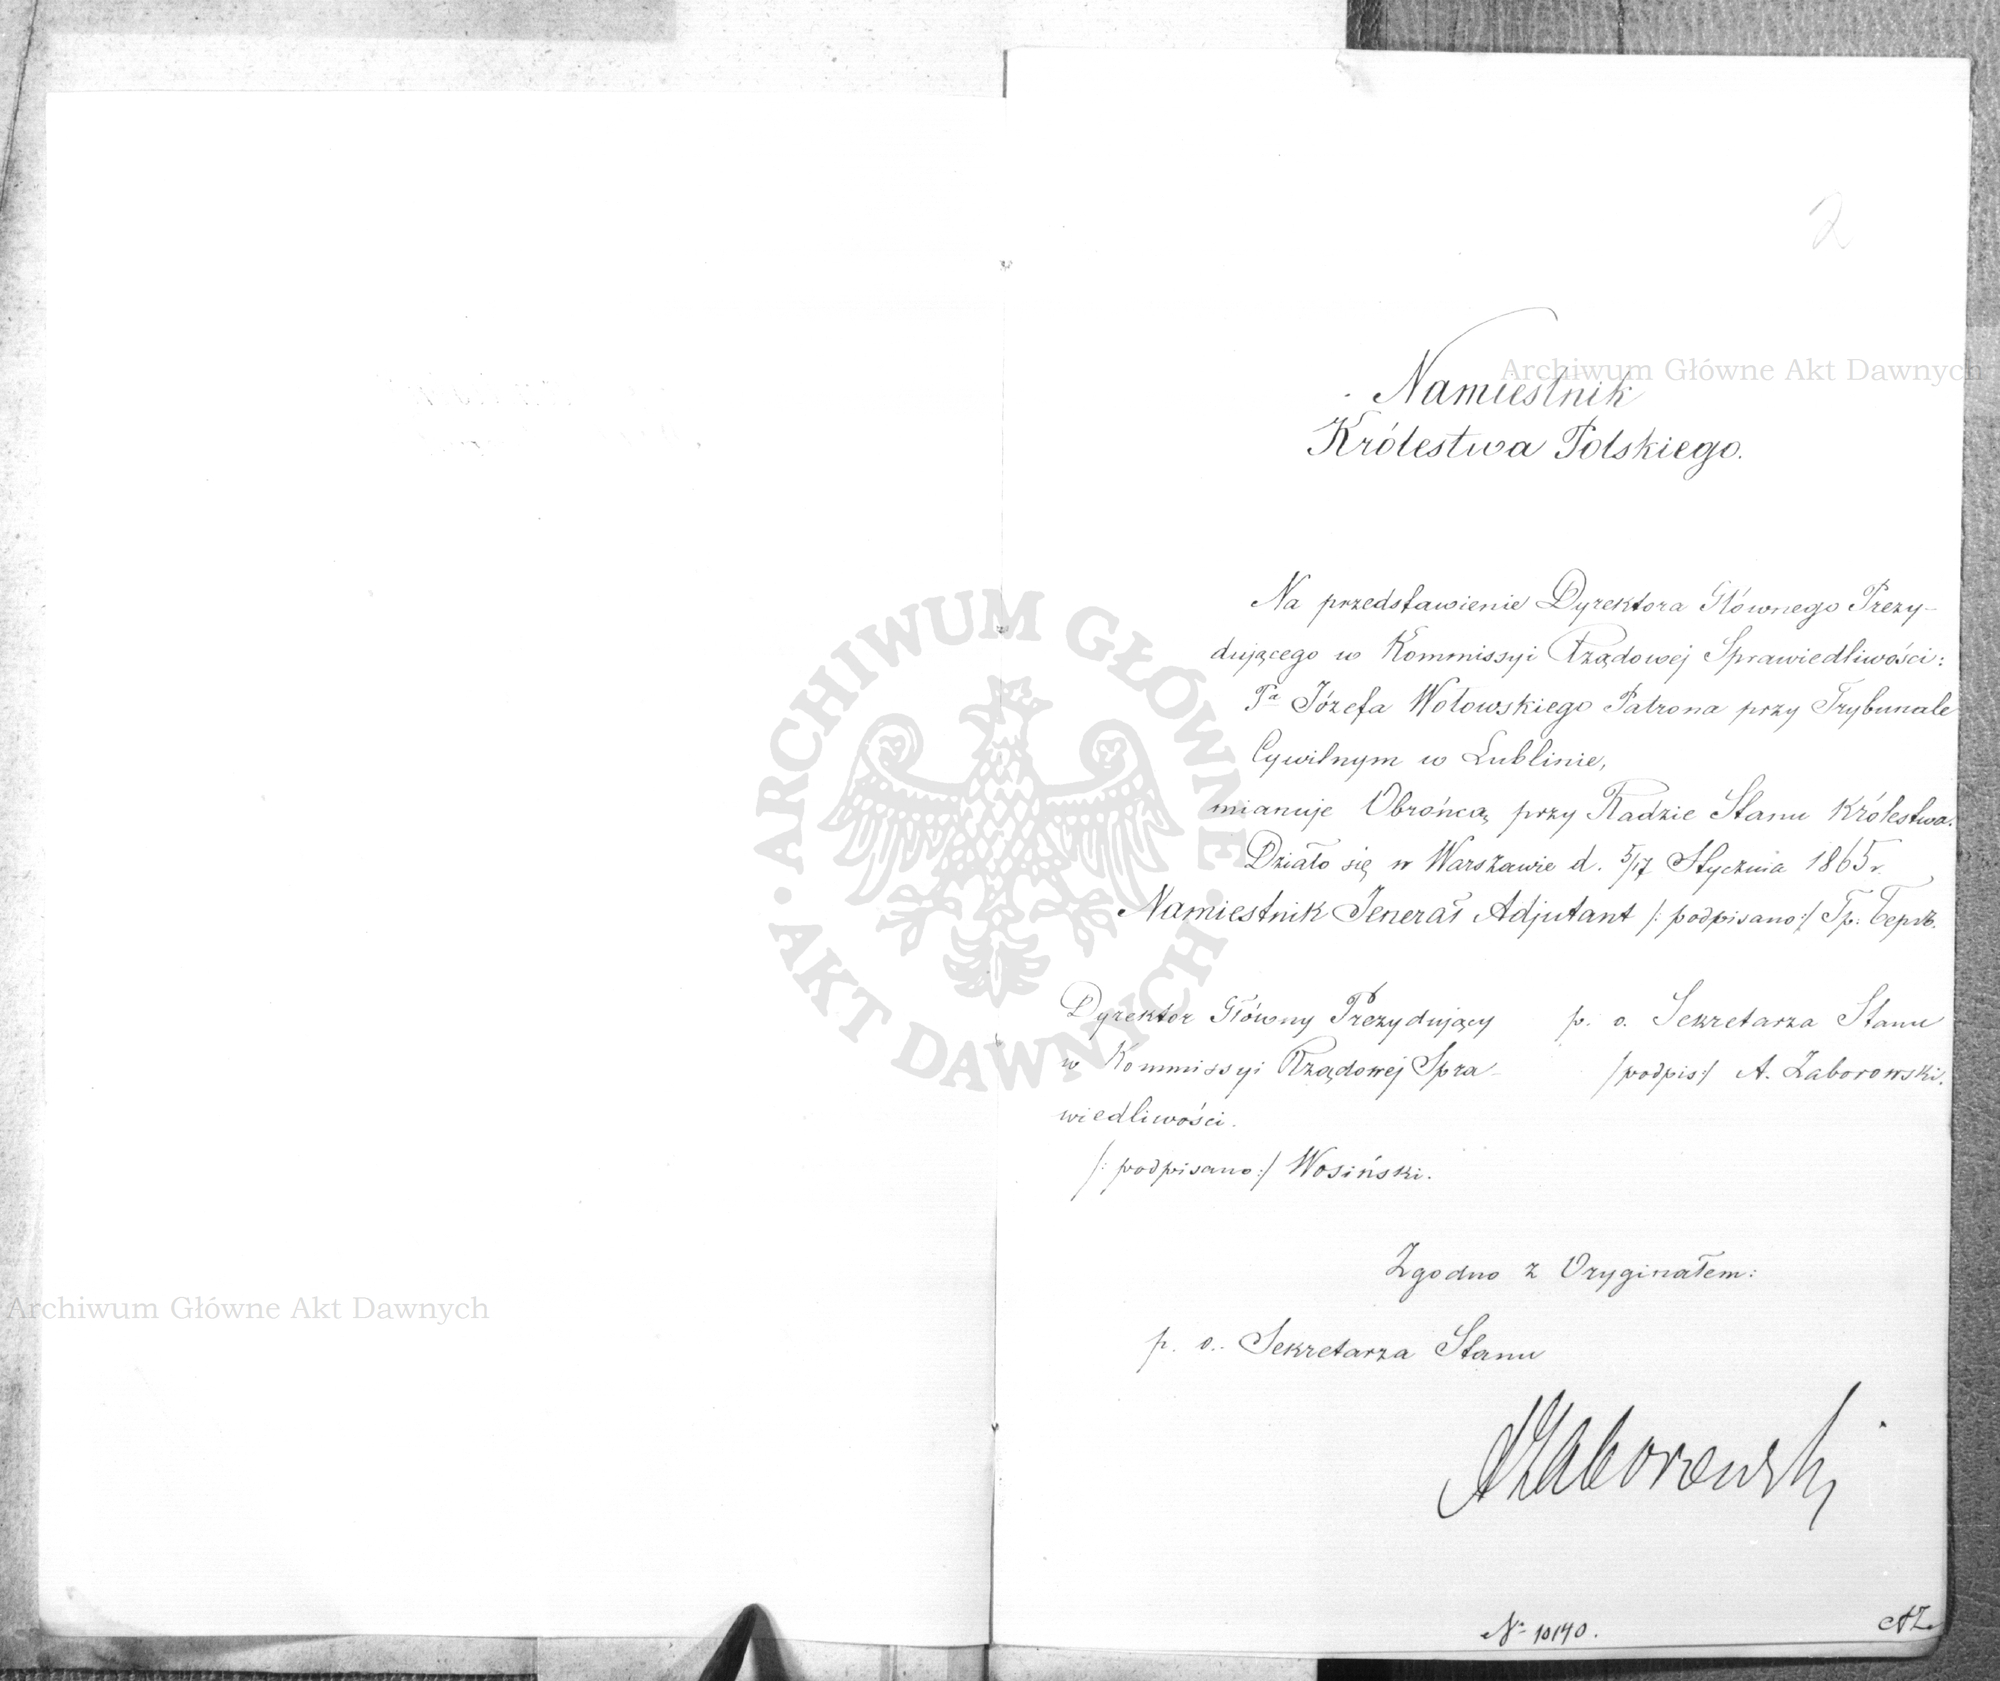 2
Namiestnik
Królestwa Polskiego.
Na przedstawienie Dyrektora Głównego Prezy-
dującego w Kommissyi Rządowej Sprawiedliwości:
Pa Józefa Wołowskiego Patrona przy Trybunale
Cywilnym w Lublinie,
mianuje Obrońcą przy Radzie Stanu Królestwa.
Działo się w Warszawie d. 5/17 Stycznia 1865 r.
Namiestnik Jenerał Adjutant /: podpisano :/ Гр. Бергъ.
Dyrektor Główny Prezydujący
w Kommissyi Rządowej Spra-
wiedliwości.
/: podpisano :/ Wosiński.
p. o. Sekretarza Stanu
/podpis:/ A. Zaborowski.
Zgodno z Oryginałem:
p. o. Sekretarza Stanu
AZaborowski
№ 10140.
AZ.
Archiwum Główne Akt Dawnych
Archiwum Główne Akt Dawnych
ARCHIWUM GŁÓWNE · AKT DAWNYCH ·